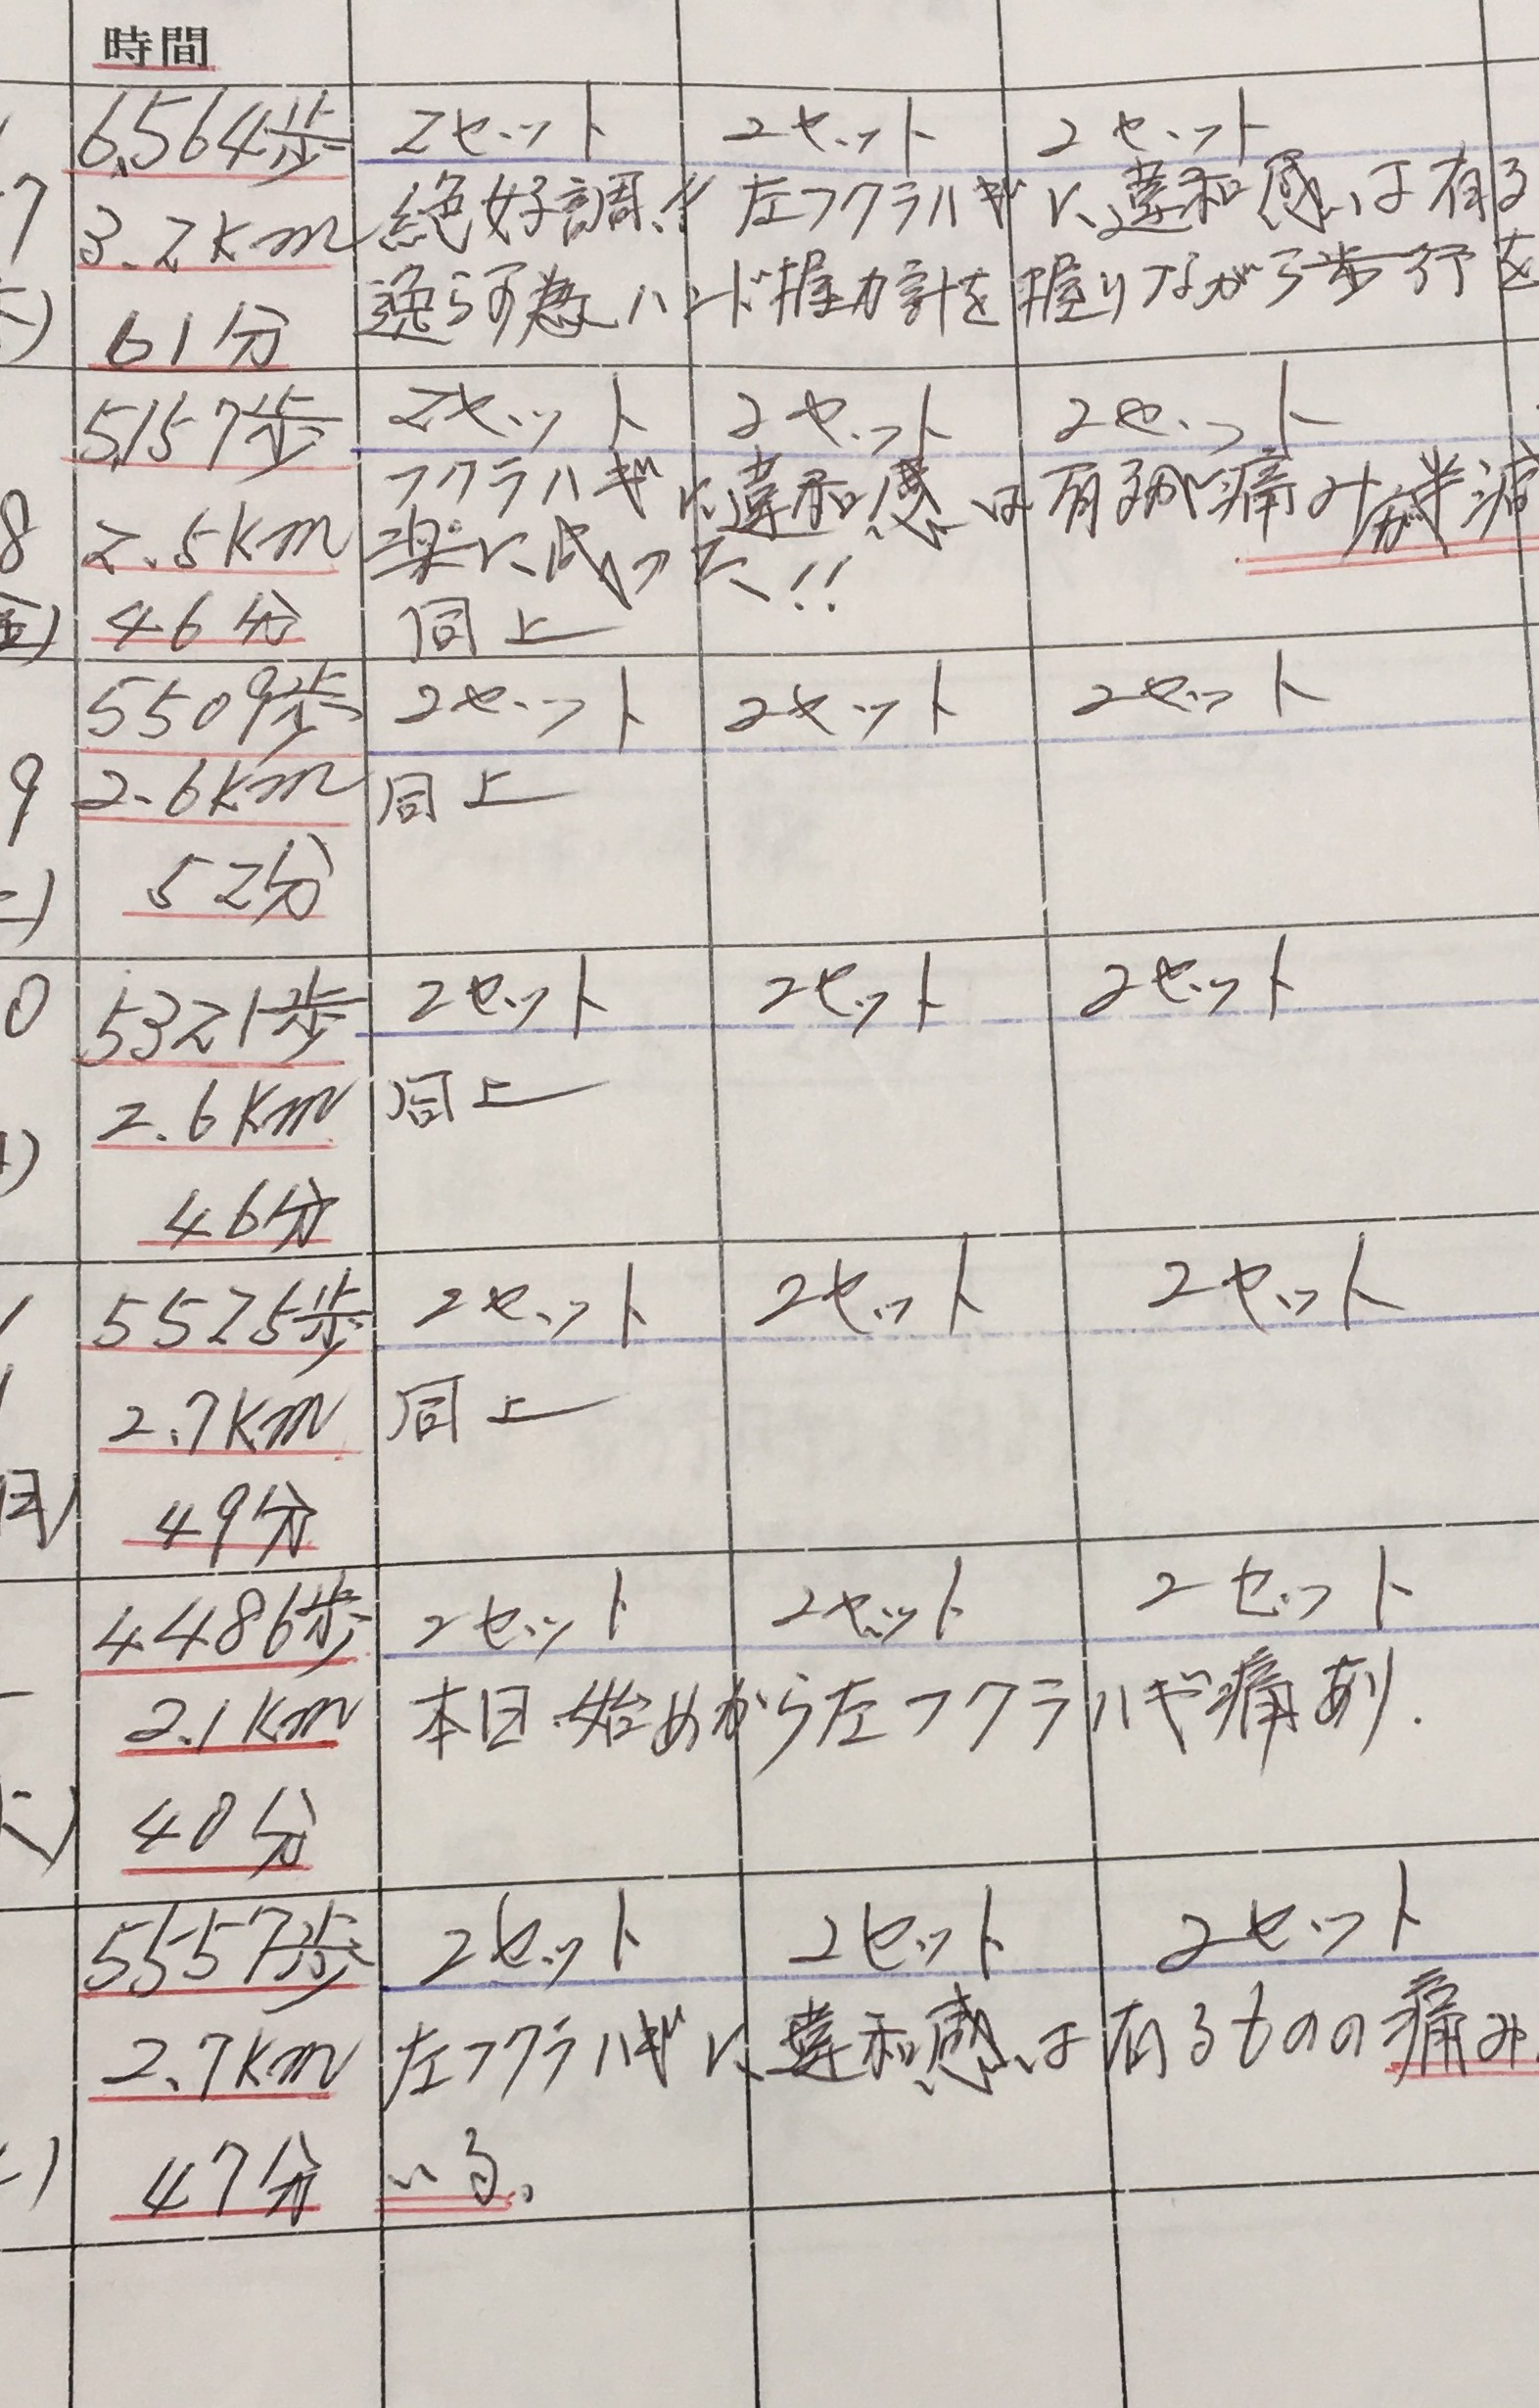 時間
6,564歩 2セット 2セット 2セット
7 3.2km 絶好調!! 左フクラハギに違和感は有る
逸らす為ハンド握力計を握りながら歩行を
61分
5,157歩 2セット 2セット 2セット
フクラハギに違和感は有るが痛みが半減
8 2.5km 楽に成った!!
金) 46分 同上
5509歩 2セット 2セット 2セット
9 2.6km 同上
52分
0 5321歩 2セット 2セット 2セット
2.6km 同上
46分
5525歩 2セット 2セット 2セット
2.7km 同上
49分
4486歩 2セット 2セット 2セット
2.1km 本日始めから左フクラハギ痛あり.
40分
5557歩 2セット 2セット 2セット
2.7km 左フクラハギに違和感は有るものの痛み
47分 いる。